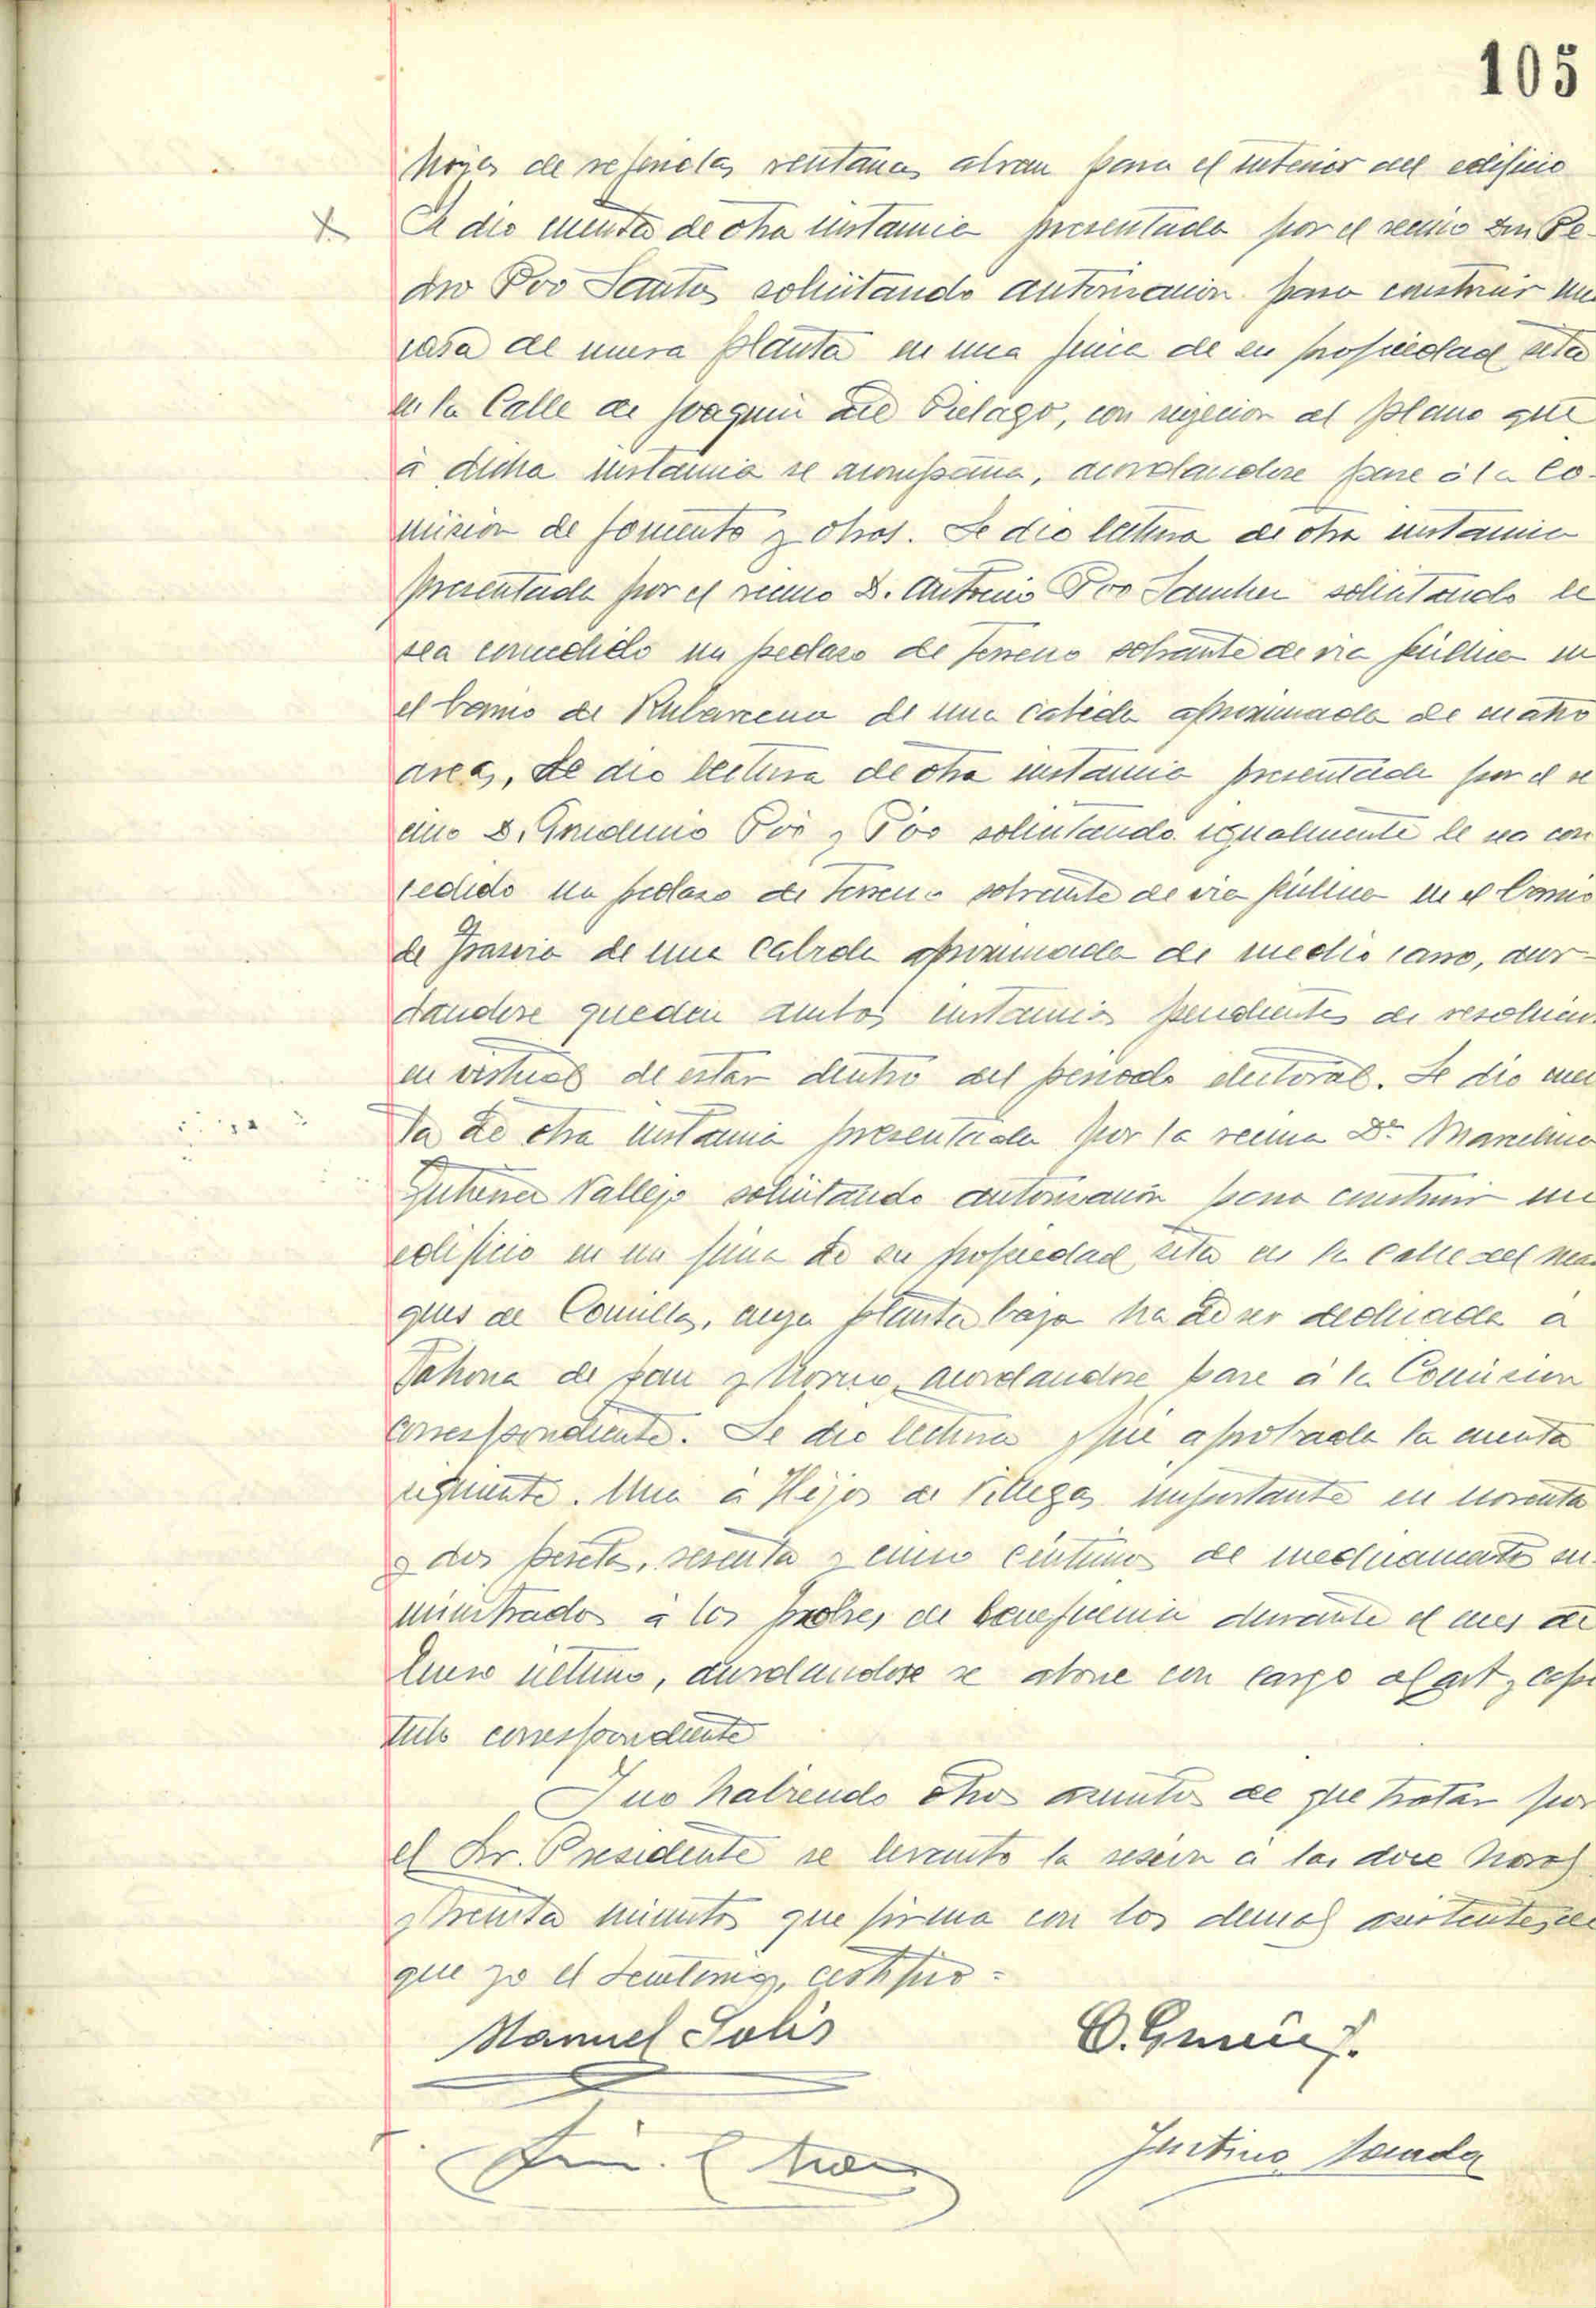 105
hojas de referidas ventanas abran para el interior del edificio
Se dio cuenta de otra instancia presentada por el vecino Don Pe-
dro Poo Santos solicitando autorización para construir una
casa de nueva planta en una finca de su propiedad sita
en la Calle de Joaquin del Pielago, con sujecion al plano que
á dicha instancia se acompaña, acordandose pase á la Co-
mision de fomento y obras. Se dio lectura de otra instancia
presentada por el vecino D. Antonio Poo Sanchez solicitando le
sea concedido un pedazo de terreno sobrante de via pública en
el barrio de Rubarcena de una cabida aproximada de cuatro
areas, Se dio lectura de otra instancia presentada por el ve
cino D. Poo y Poo solicitando igualmente le sea con
cedido un pedazo de terreno sobrante de via pública en el barrio
de de una cabida aproximada de medio carro, acor-
dandose queden ambas instancias pendientes de resolucion
en virtud de estar dentro del periodo electoral. Se dio cuen
ta de otra instancia presentada por la vecina Dª Marcelina
Gutierrez Vallejo solicitando autorización para construir un
edificio en una finca de su propiedad sita en la calle del Mar
ques de Comillas, cuya planta baja ha de ser dedicada a
Tahona de pan y horno, acordandose pase á la Comision
correspondiente. Se dio lectura y fué aprobada la cuenta
siguiente. Una á Hijos de Villegas importante en noventa
y dos pesetas, sesenta y cinco céntimos de medicamentos su
ministrados á los pobres de beneficencia durante el mes de
Enero último, acordandose se abone con cargo al art y capi
tulo correspondiente
Y no habiendo otros asuntos de que tratar por
el Sr. Presidente se levanto la sesion á las doce horas
y treinta minutos que firma con los demas asistentes, de
que yo el Secretario, certifico =
Manuel Solis
Justino